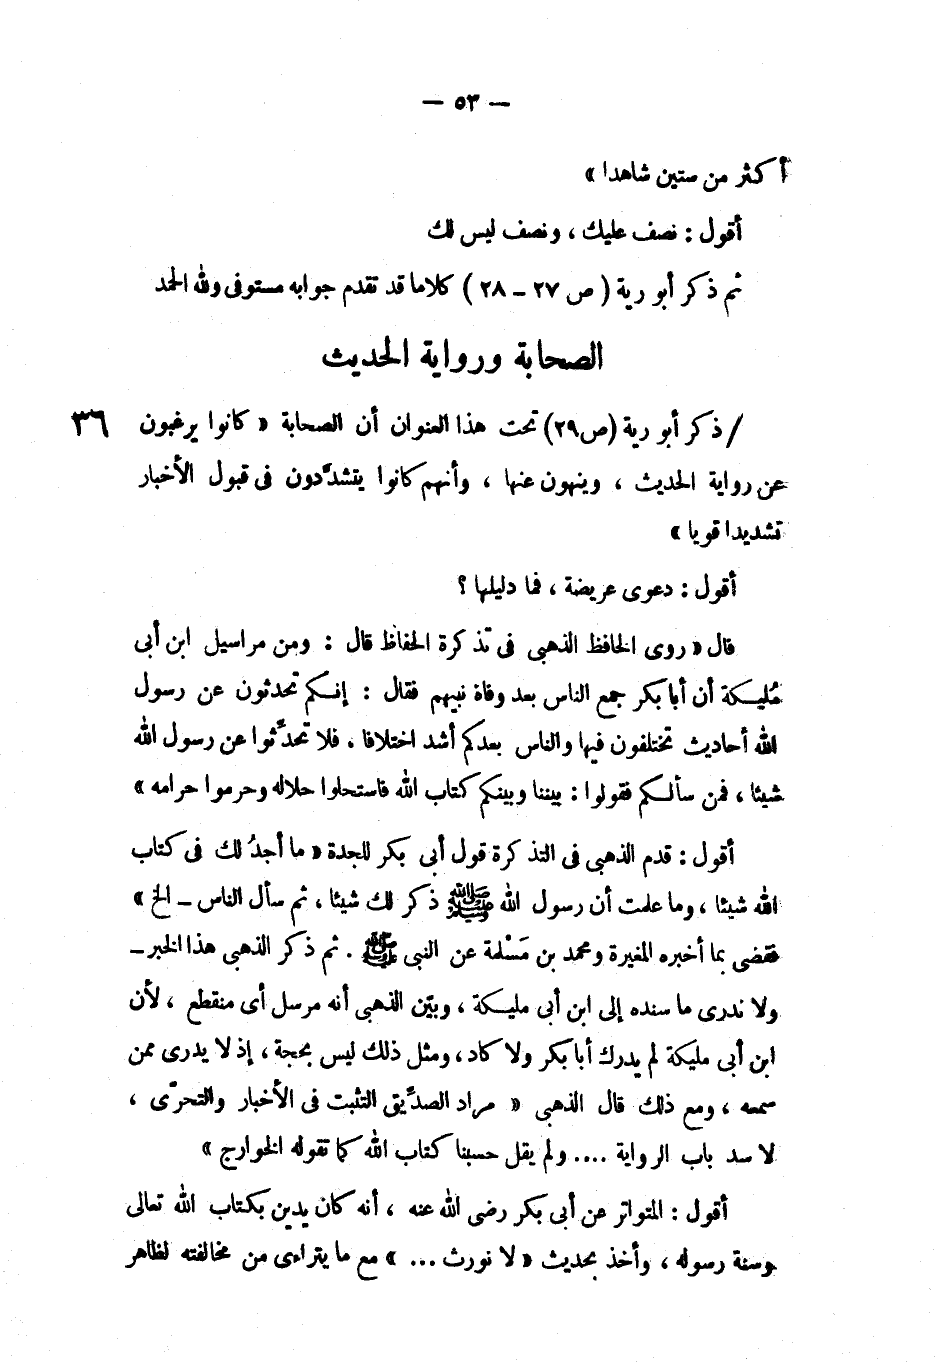 — ٥٣ —
أكثر من ستين شاهدا »
أقول : نصف عليك ، ونصف ليس لك
ثم ذكر أبو رية ( ص ٢٧ – ٢٨ ) كلاما قد تقدم جوابه مستوفى ولله الحمد
الصحابة ورواية الحديث
/ ذكر أبو رية (ص٢٩) تحت هذا العنوان أن الصحابة « كانوا يرغبون ٣٦
عن رواية الحديث ، وينهون عنها ، وأنهم كانوا يتشدَّدون فى قبول الأخبار
تشديدا قويا »
أقول : دعوى عريضة ، فما دليلها ؟
قال « روى الحافظ الذهبى فى تذكرة الحفاظ قال : ومن مراسيل ابن أبى
مُليكة أن أبا بكر جمع الناس بعد وفاة نبيهم فقال : إنكم تحدثون عن رسول
الله أحاديث تختلفون فيها والناس بعدكم أشد اختلافا ، فلا تحدِّثوا عن رسول الله
شيئا ، فمن سألكم فقولوا : بيننا وبينكم كتاب الله فاستحلوا حلاله وحرموا حرامه »
أقول : قدم الذهبى فى التذكرة قول أبى بكر للجدة « ما أجدُ لك فى كتاب
الله شيئا ، وما علمت أن رسول الله ﷺ ذكر لك شيئا ، ثم سأل الناس – الخ »
فقضى بما أخبره المغيرة ومحمد بن مَسْلمة عن النبى ﷺ . ثم ذكر الذهبى هذا الخبر –
ولا ندرى ما سنده إلى ابن أبى مليكة ، وبيّن الذهبى أنه مرسل أى منقطع ، لأن
ابن أبى مليكة لم يدرك أبا بكر ولا كاد ، ومثل ذلك ليس بحجة ، إذ لا يدرى ممن
سمعه ، ومع ذلك قال الذهبى « مراد الصدِّيق التثبت فى الأخبار والتحرّى ،
لا سد باب الرواية .... ولم يقل حسبنا كتاب الله كما تقوله الخوارج »
أقول : المتواتر عن أبى بكر رضى الله عنه ، أنه كان يدين بكتاب الله تعالى
وسنة رسوله ، وأخذ بحديث « لا نورث ... » مع ما يتراءى من مخالفته لظاهر